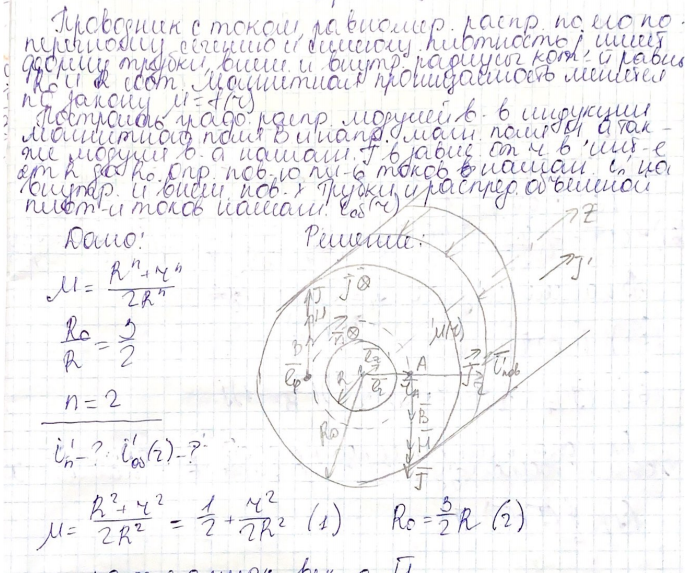 Проводник с током, равномер. распр. по его по-
перечному сечению и имеющему плотность j имеет
форму трубки, внеш и внутр. радиусы кот-й равны
R₀ и R соот. магнитная проницаемость меняется
по закону μ=f(r)
Построить граф. распр. модулей в. в индукции
магнитного поля B и напр. магн. поля H, а так-
же модуля в-а намагн. J в завис от r в инт-е
от R до R₀. опр. пов-ю пл-ть токов намагн. i'ₙ на
внутр. и внеш пов-х трубки и распред. объемной
плот-и токов намагн. i'об(r).
Дано:
Решение:
μ = (Rⁿ+rⁿ)/(2Rⁿ)
R₀/R = 3/2
n = 2
i'ₙ-? i'об(r)-?
Z
j'
J
j⊗
H
B
μ(r)
A
R
R₀
B
H
J
i'пов
μ = (R²+r²)/(2R²) = 1/2 + r²/(2R²) (1) R₀ = 3/2 R (2)